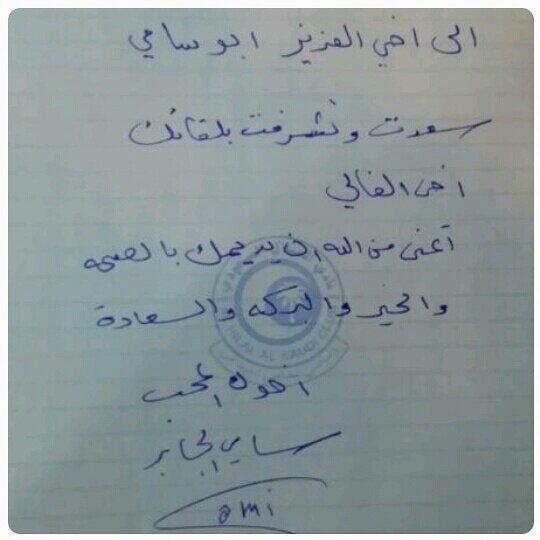 الى اخي العزيز ابو سامي
سعدت وتشرفت بلقائك
اخي الغالي
أتمنى من الله ان يديمك بالصحه
والخير والبركه والسعادة
اخوك المحب
سامي الجابر
ami
HILAL AL SAUDI CLUB